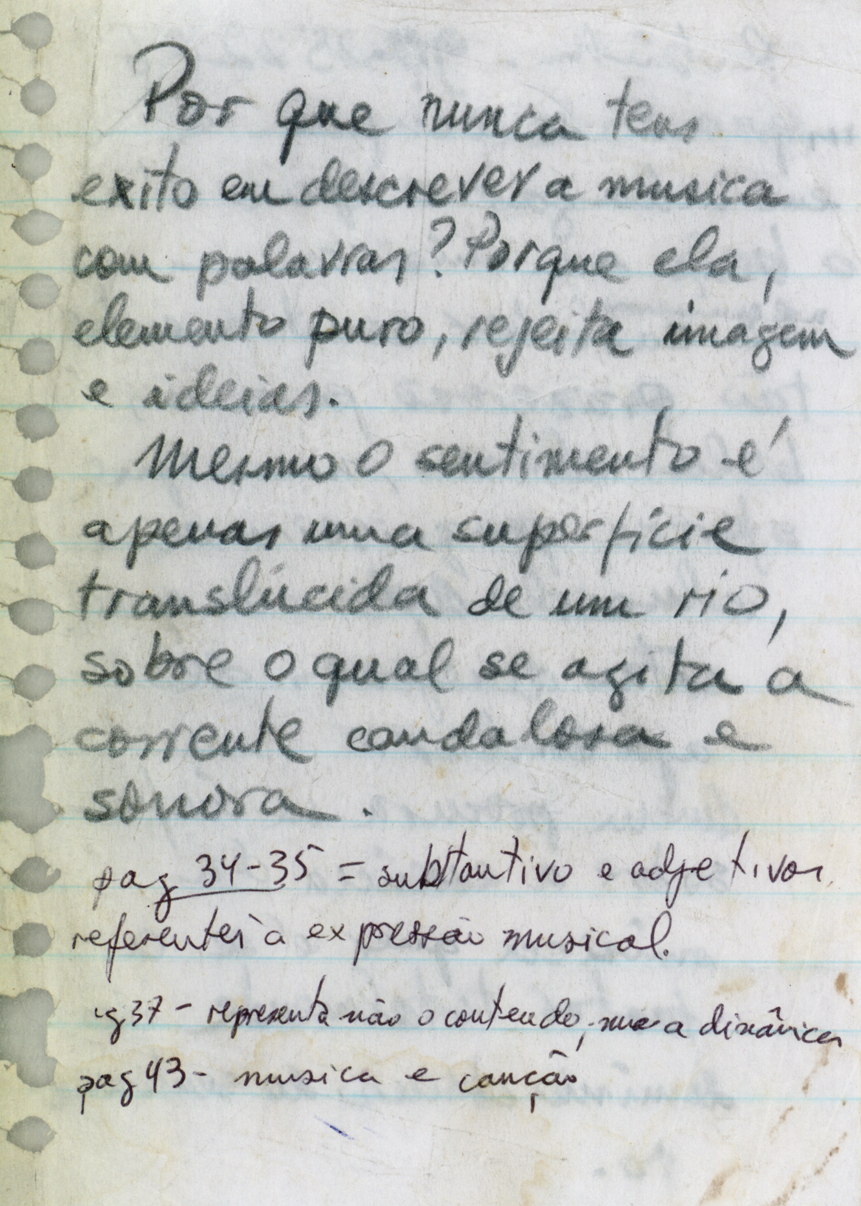 Por que nunca tens
exito em descrever a musica
com palavras? Porque ela,
elemento puro, rejeita imagem
e ideias.
Mesmo o sentimento é
apenas uma superfície
translúcida de um rio,
sobre o qual se agita a
corrente caudalosa e
sonora.
pag 34-35 = substantivo e adjetivos
referentes à expressão musical.
pg 37 - representa não o conteudo, mas a dinâmica
pag 43 - musica e canção